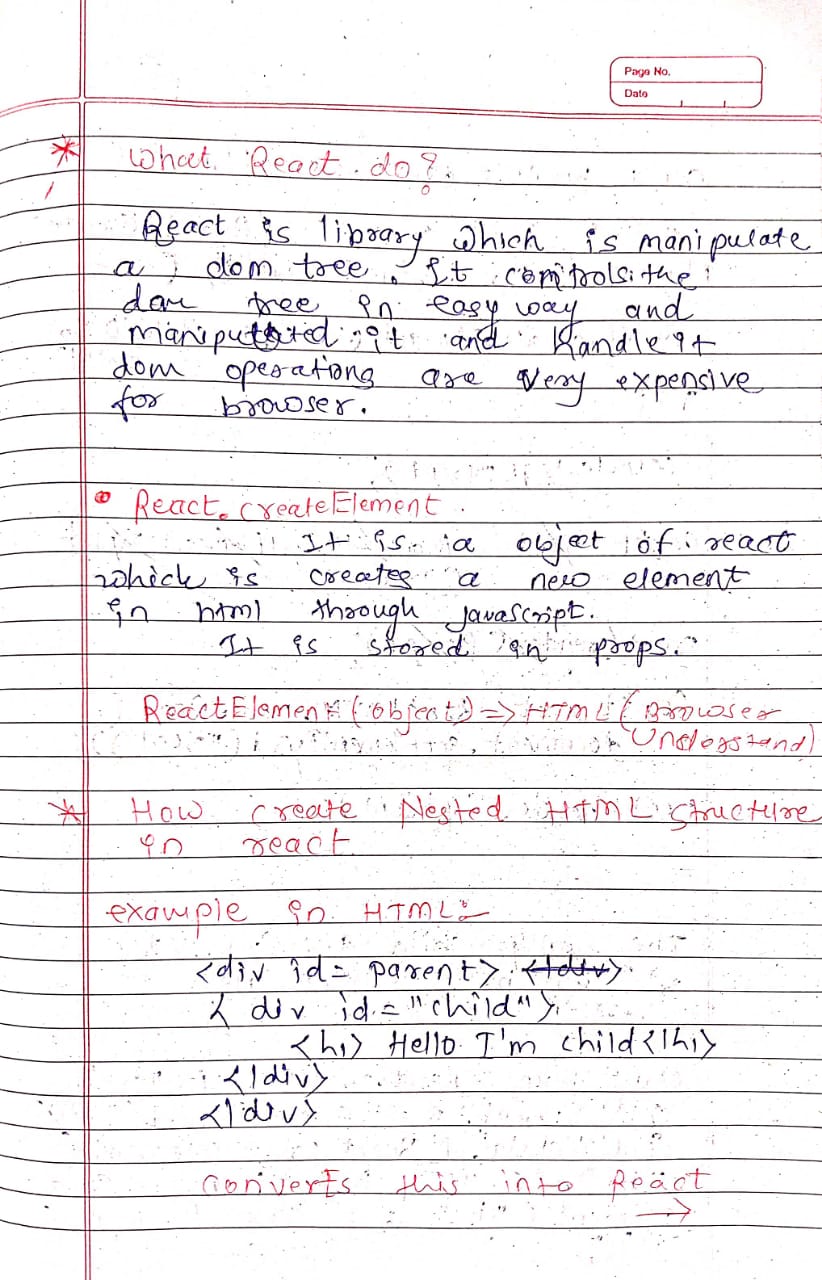 Page No.
Date
* What React do?
React is library which is manipulate
a dom tree. It controls the
dom tree in easy way and
manipulated it and Handle it
dom operations are very expensive
for browser.
React.createElement
It is a object of react
which is creates a new element
in html through javascript.
It is stored in props.
ReactElement (object) => HTML (Browser
Understand)
* How create Nested HTML structure
in react
example in HTML:
<div id= parent>
< div id = "child">
<h1> Hello I'm child</h1>
</div>
</div>
Converts this into React
→